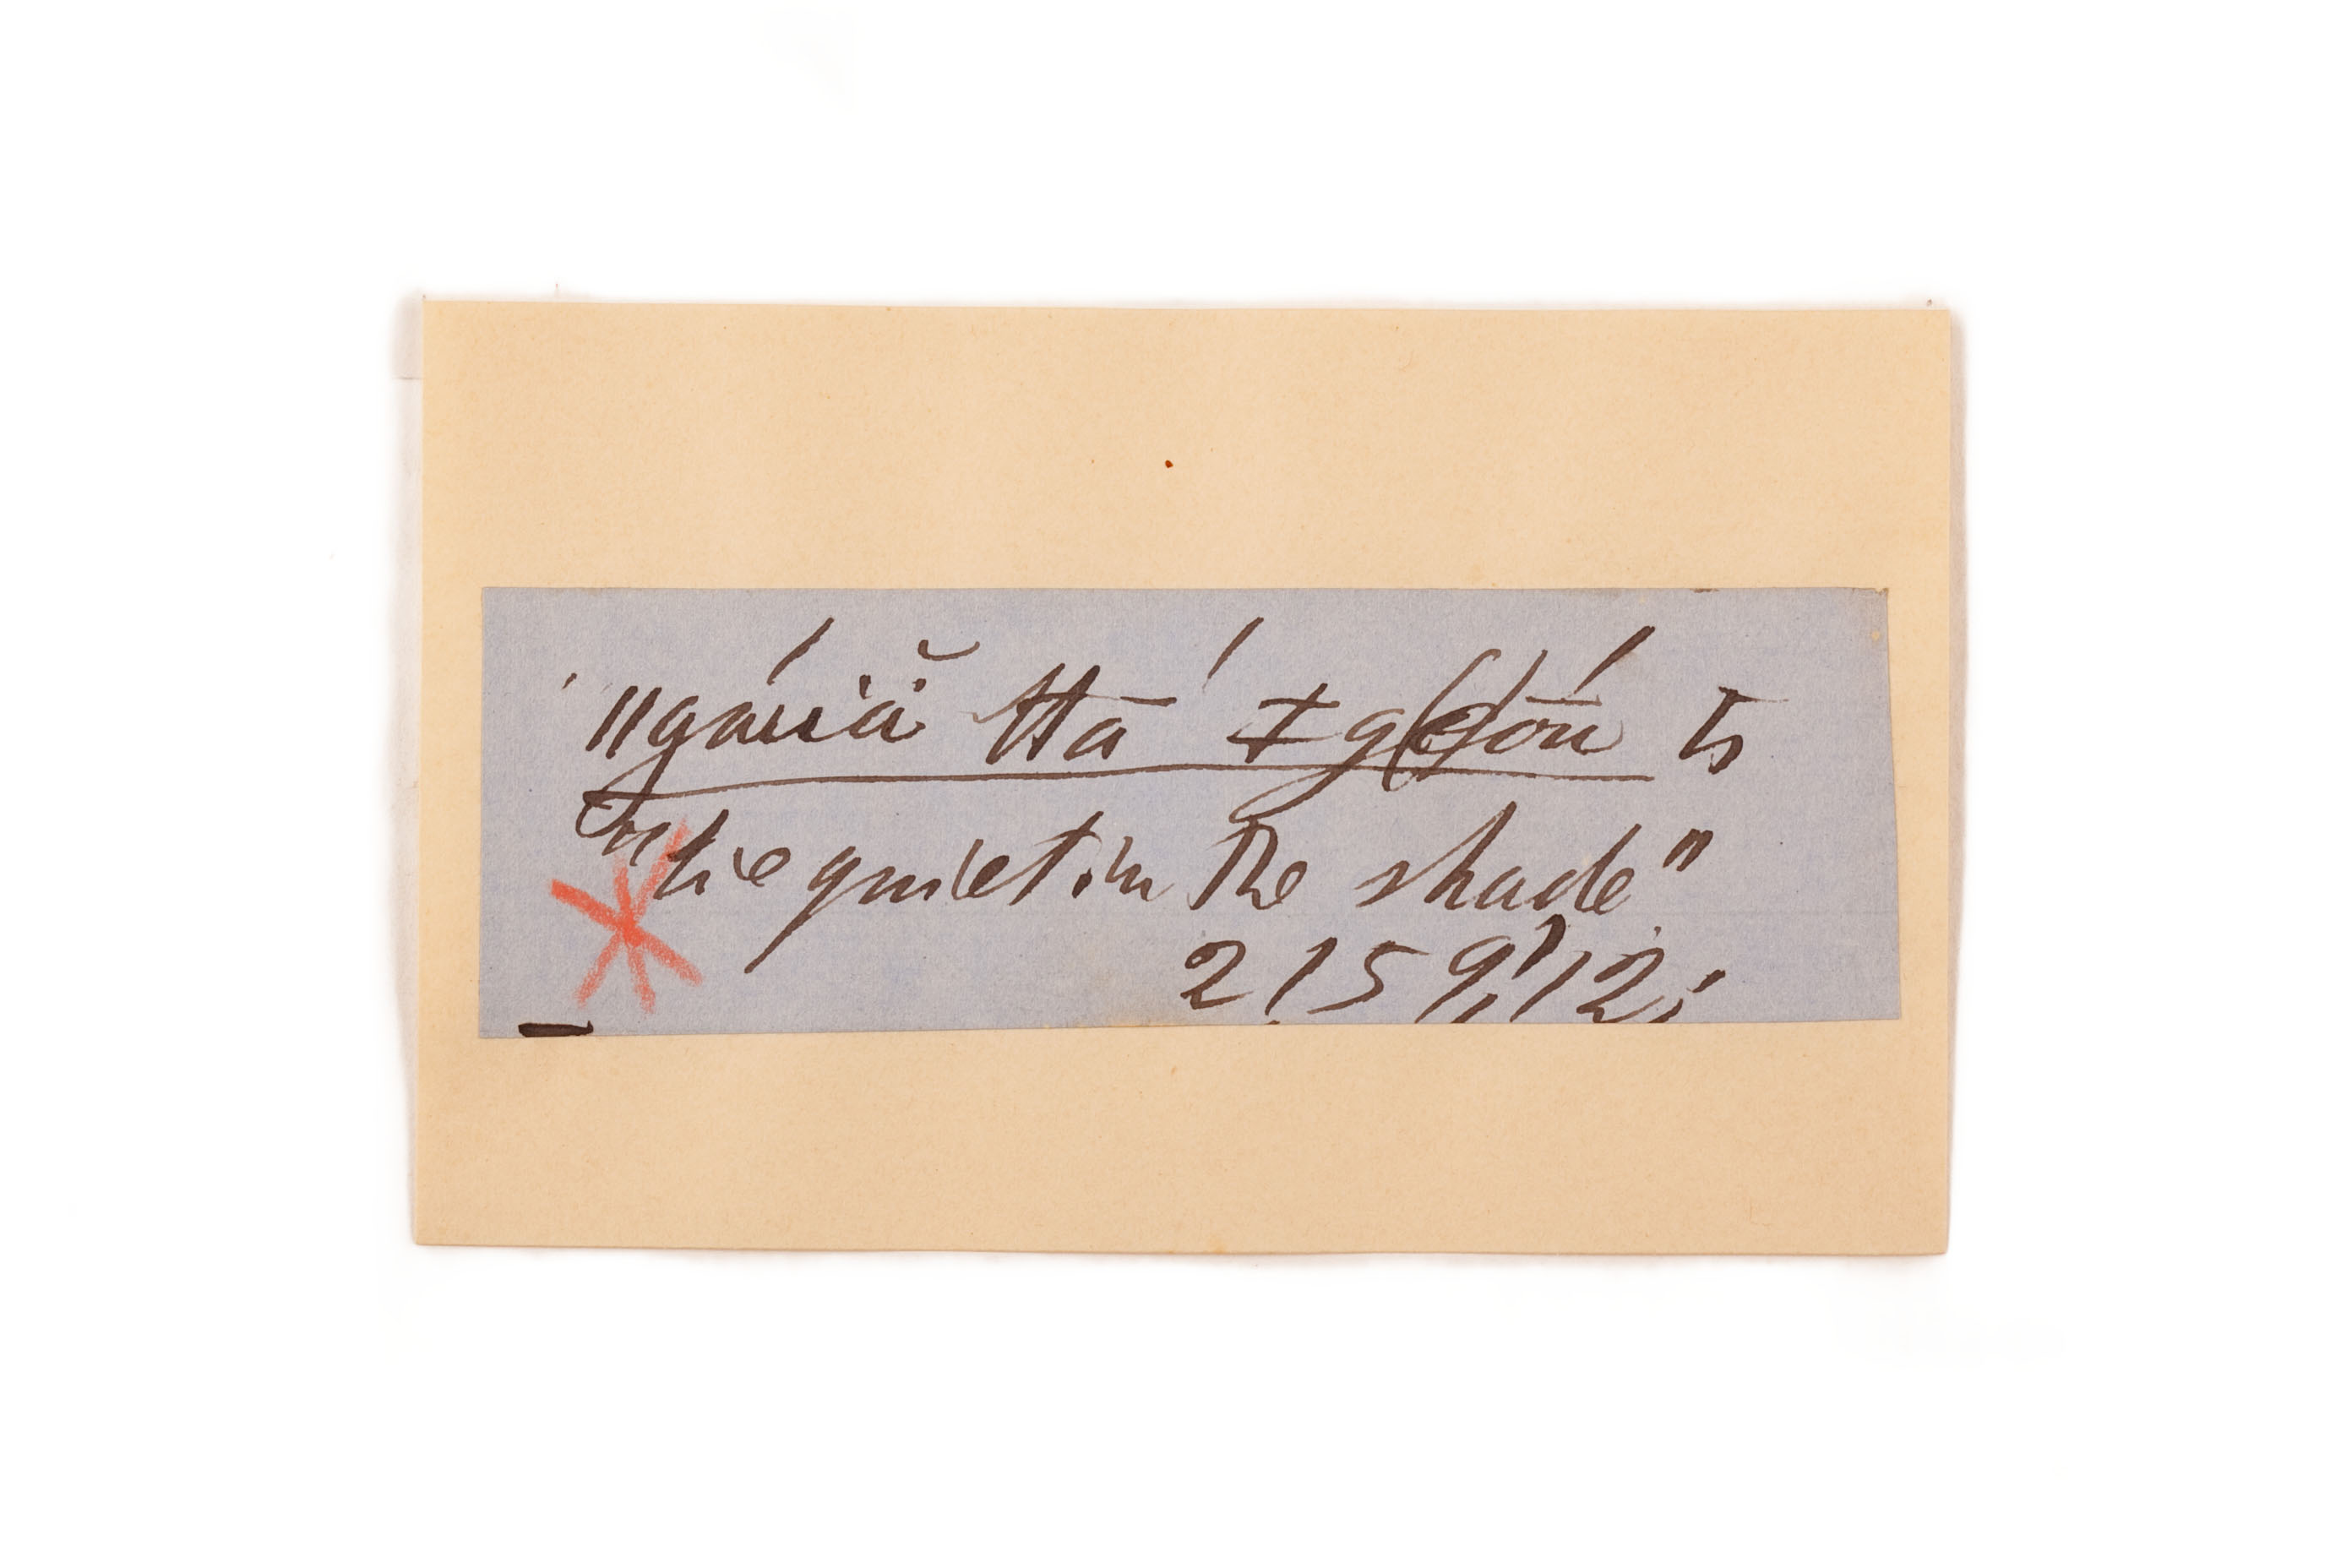 ǁgáuiä̆ ttā́ ǂg(e)ṓu to
"lie quiet in the shade"
2159,'12;